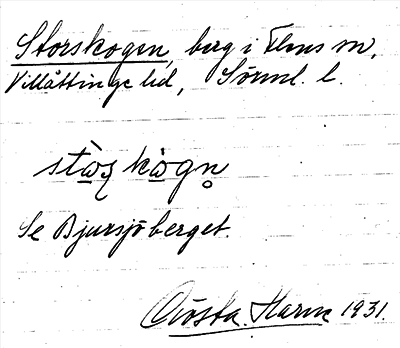 Storskogen, berg i Flens sn,
Villåttinge hd, Sörml. l.
stò̱ʂ kò̱gn̥
Se Bjursjöberget.
Gösta Harne 1931.